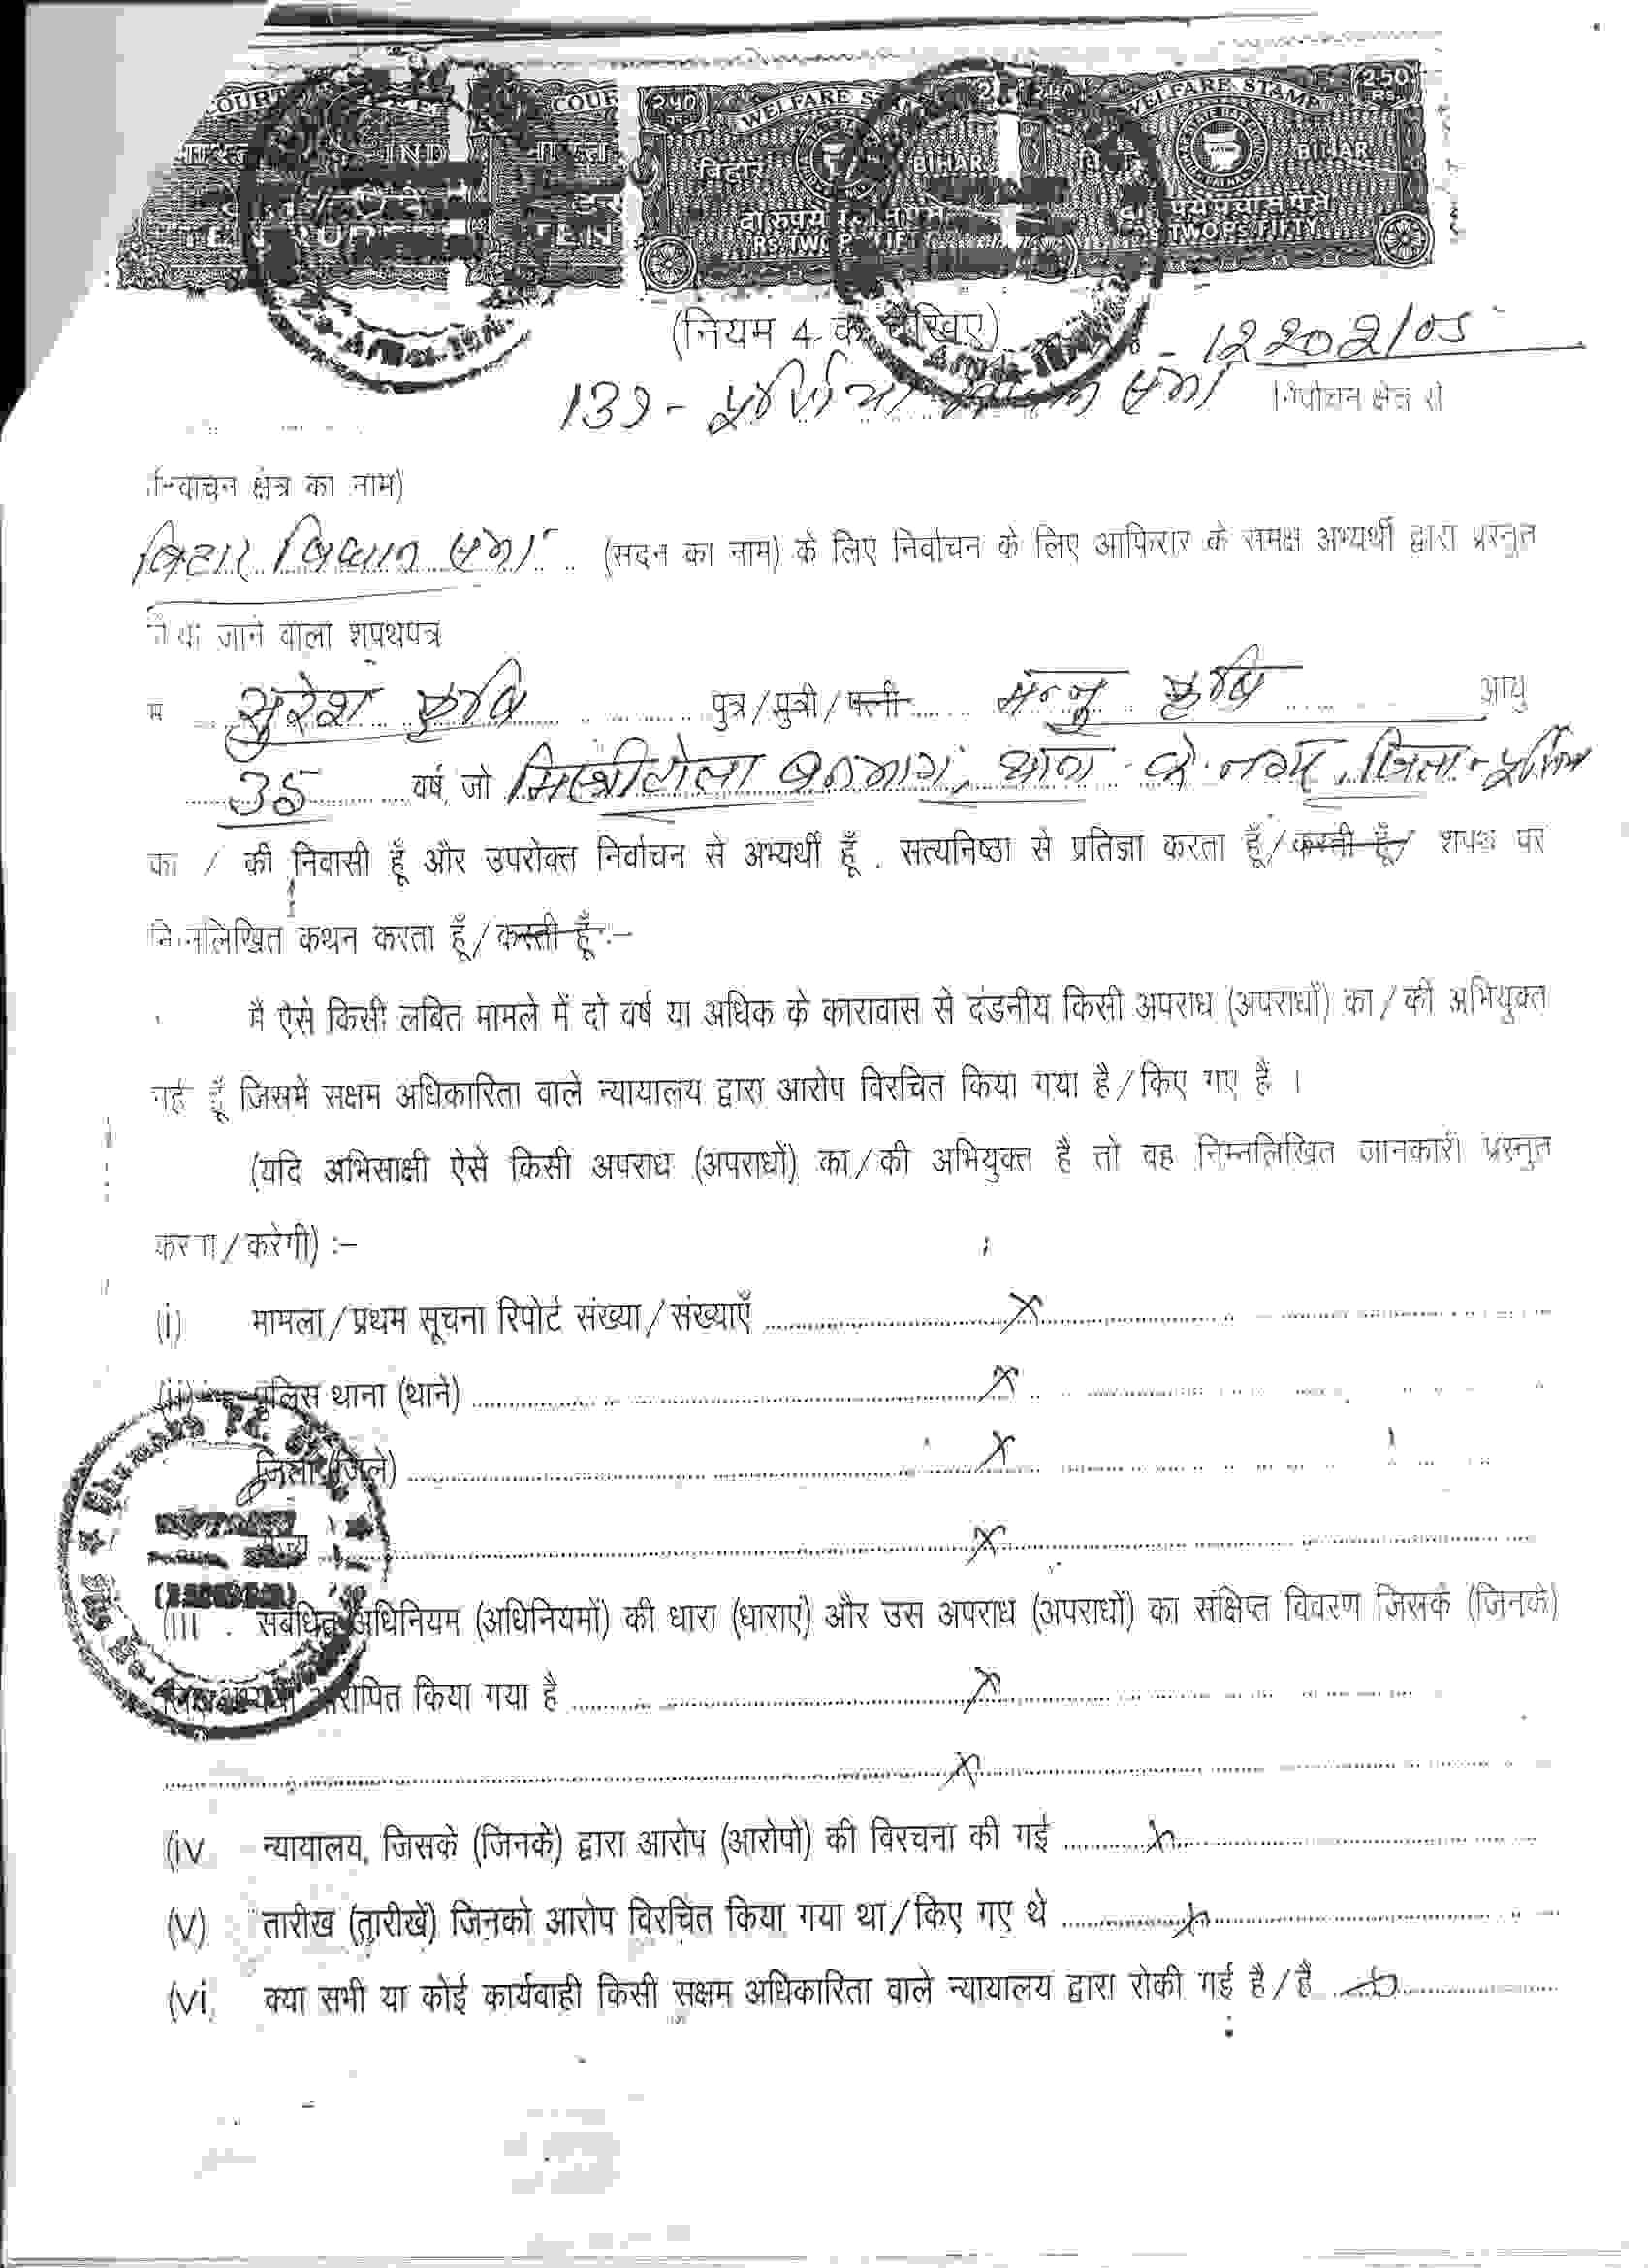 COURT FEE COUR 2.50 WELFARE STAMP 2.50 WELFARE STAMP 2.50
IND बिहार BIHAR BIHAR
दो रुपये रुपये पचास पैसे
TEN RUPEES TEN RS. TWO TWO PS. FIFTY
(नियम 4 देखिए)
12202/05
139- पूर्णिया सभा निर्वाचन क्षेत्र से
निर्वाचन क्षेत्र का नाम)
बिहार विधान सभा (सदन का नाम) के लिए निर्वाचन के लिए के समक्ष अभ्यर्थी द्वारा प्रस्तुत
जाने वाला शपथपत्र
सुरेश पुत्र/पुत्री/पत्नी मन्जु आयु
35 वर्ष, जो मिस्त्रीटोला बनभाग, थाना - के. नगर, जिला-पूर्णिया
का / की निवासी हूँ और उपरोक्त निर्वाचन से अभ्यर्थी हूँ . सत्यनिष्ठा से प्रतिज्ञा करता हूँ/करती हूँ/ शपथ पर
निम्नलिखित कथन करता हूँ/करती हूँ:–
मैं ऐसे किसी लंबित मामले में दो वर्ष या अधिक के कारावास से दंडनीय किसी अपराध (अपराधों) का/की अभियुक्त
नहीं हूँ जिसमें सक्षम अधिकारिता वाले न्यायालय द्वारा आरोप विरचित किया गया है/किए गए हैं ।
(यदि अभिसाक्षी ऐसे किसी अपराध (अपराधों) का/की अभियुक्त है तो वह निम्नलिखित जानकारी प्रस्तुत
करेगा/करेगी) :–
(i) मामला/प्रथम सूचना रिपोर्ट संख्या/संख्याएँ ........ X
(ii) पुलिस थाना (थाने) ........ X
जिला (जिले) ........ X
X
(iii . संबंधित अधिनियम (अधिनियमों) की धारा (धाराएं) और उस अपराध (अपराधों) का संक्षिप्त विवरण जिसके (जिनके)
आरोपित किया गया है ........ X
X
(iv न्यायालय, जिसके (जिनके) द्वारा आरोप (आरोपों) की विरचना की गई ........ X
(v) तारीख (तारीखें) जिनको आरोप विरचित किया गया था/किए गए थे ........ X
(vi, क्या सभी या कोई कार्यवाही किसी सक्षम अधिकारिता वाले न्यायालय द्वारा रोकी गई है/हैं ........ X